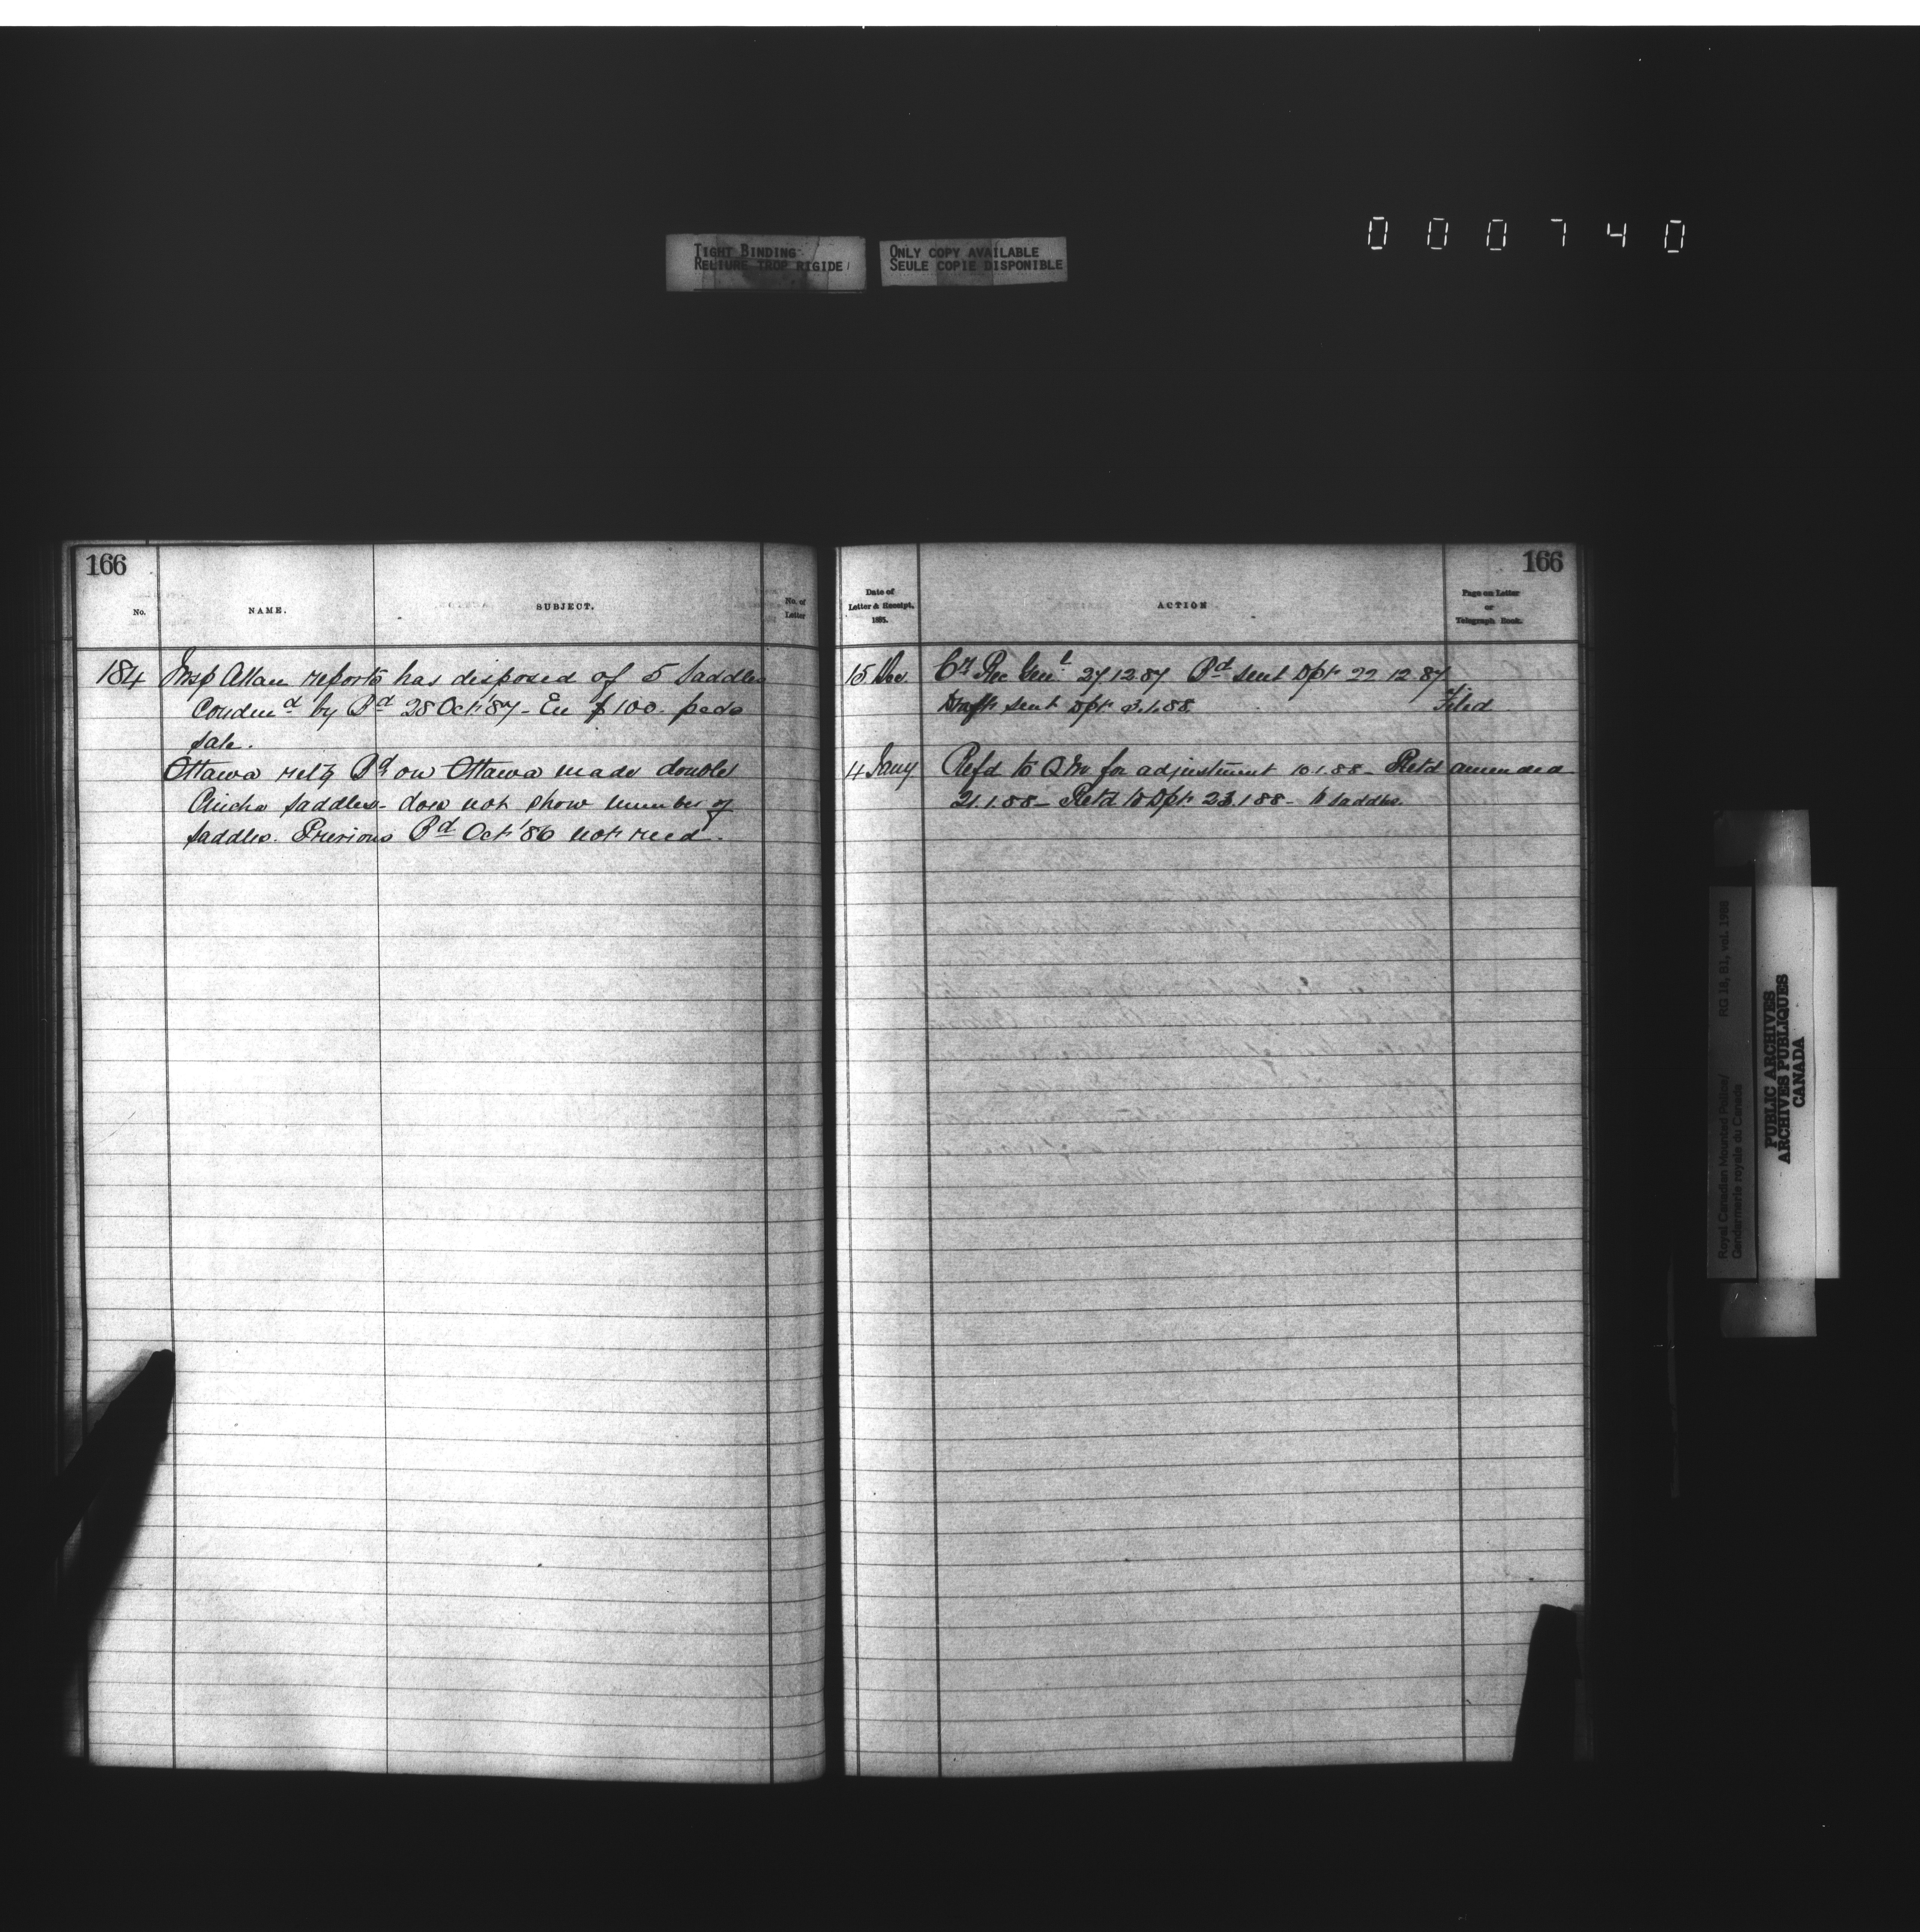 000740
TIGHT BINDING
RELIURE TROP RIGIDE
ONLY COPY AVAILABLE
SEULE COPIE DISPONIBLE
166
No.
NAME.
SUBJECT.
No. of
Letter
184 Insp Allan reports has disposed of 5 saddles
Condemd by Bd 28 Oct '87 - $100
sale.
Ottawa Bd on Ottawa made double
Cincha saddles - does not show number of
saddles. Previous Bd Oct '86 not recd.
166
Date of
Letter & Receipt,
1885.
ACTION
Page on Letter
or
Telegraph Book.
15 Dec Cr Rec Genl 27.12.87 Bd sent Dpt 22 12.87
Draft sent Dpt 3.1.88. Filed
4 Jany Refd to QM for adjustment 10.1.88 - Retd amended
21.1.88 - Retd to Dpt 23.1.88 - saddles.
Royal Canadian Mounted Police/
Gendarmerie royale du Canada
RG 18, B1, vol.
PUBLIC ARCHIVES
ARCHIVES PUBLIQUES
CANADA